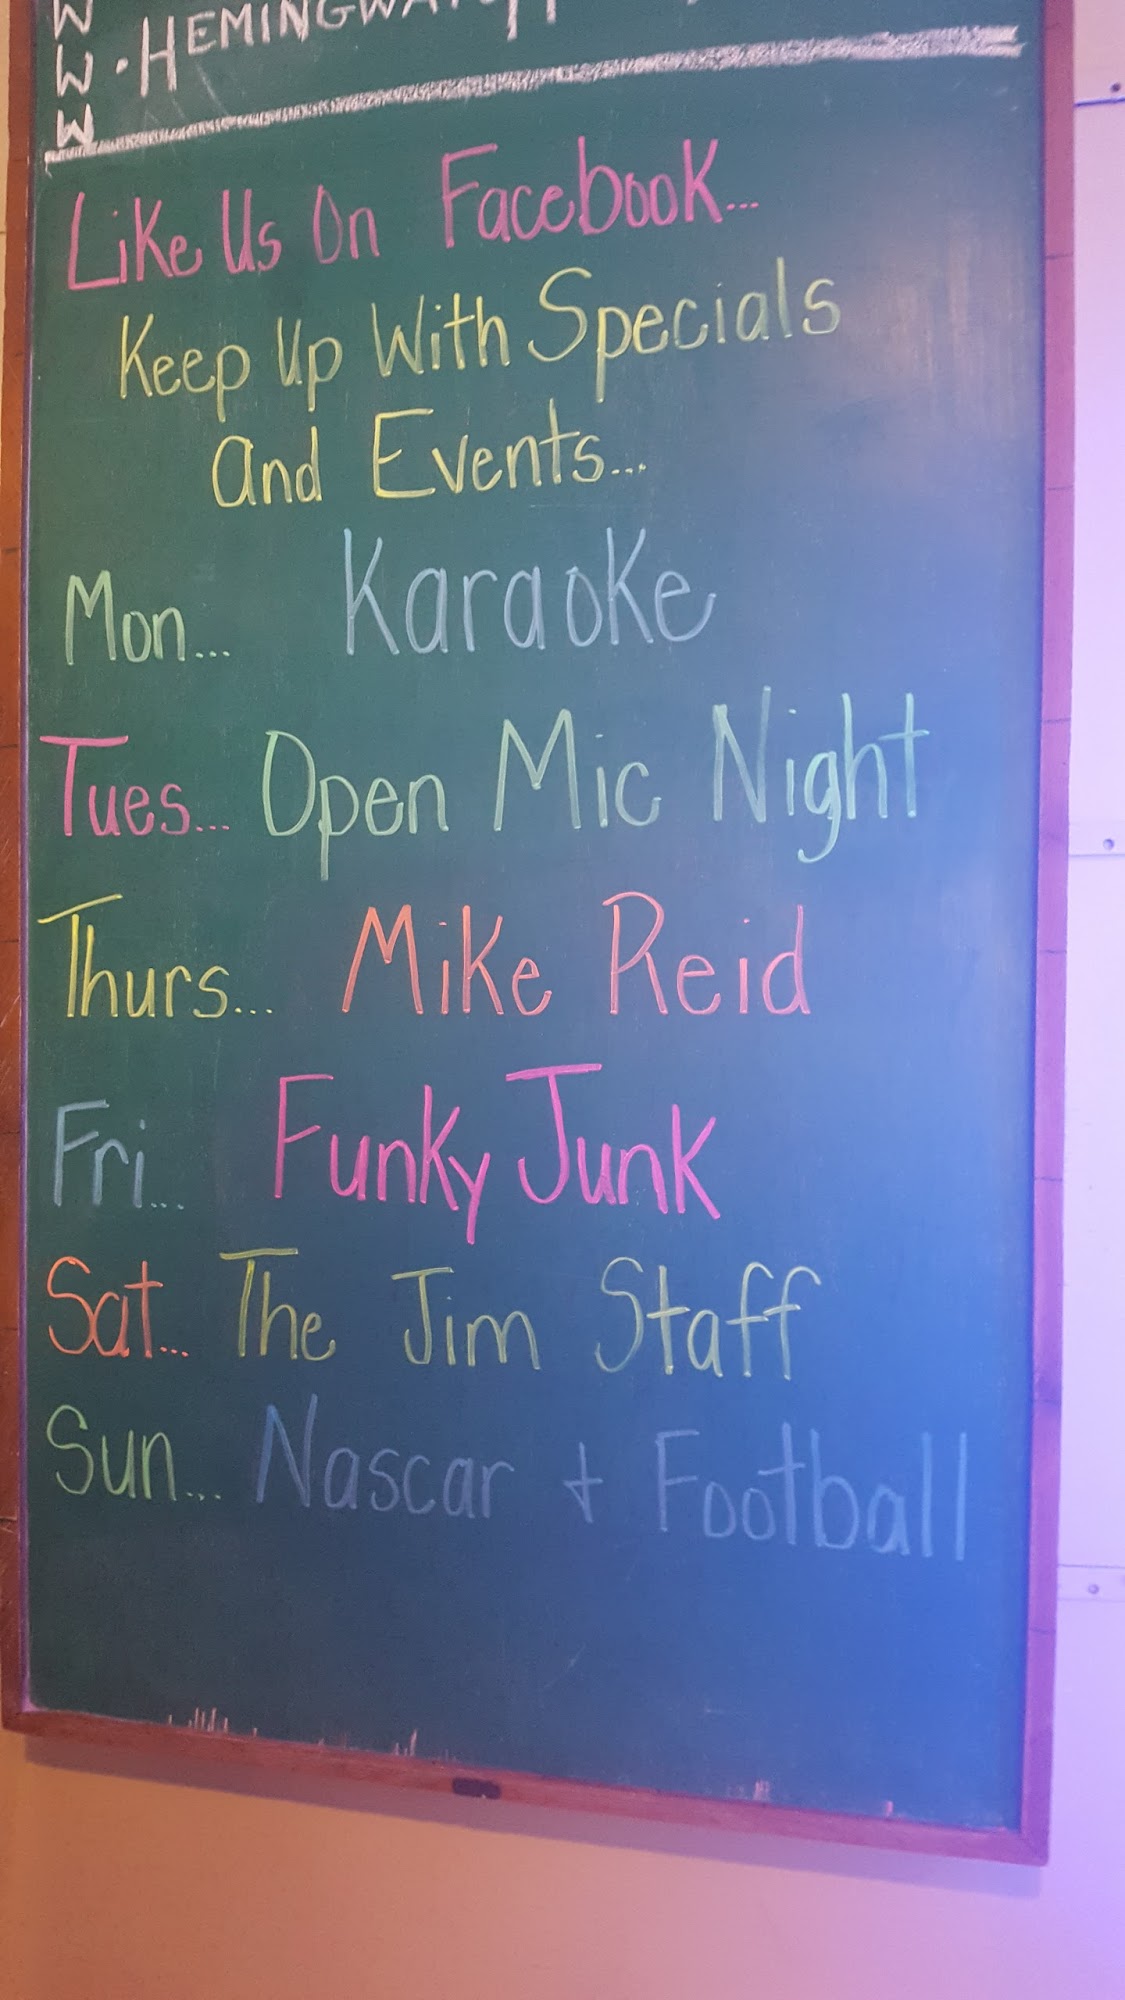 WWW
Like Us On Facebook...
Keep Up With Specials
and Events...
Mon... Karaoke
Tues... Open Mic Night
Thurs... Mike Reid
Fri... Funky Junk
Sat... The Jim Staff
Sun... Nascar + Football